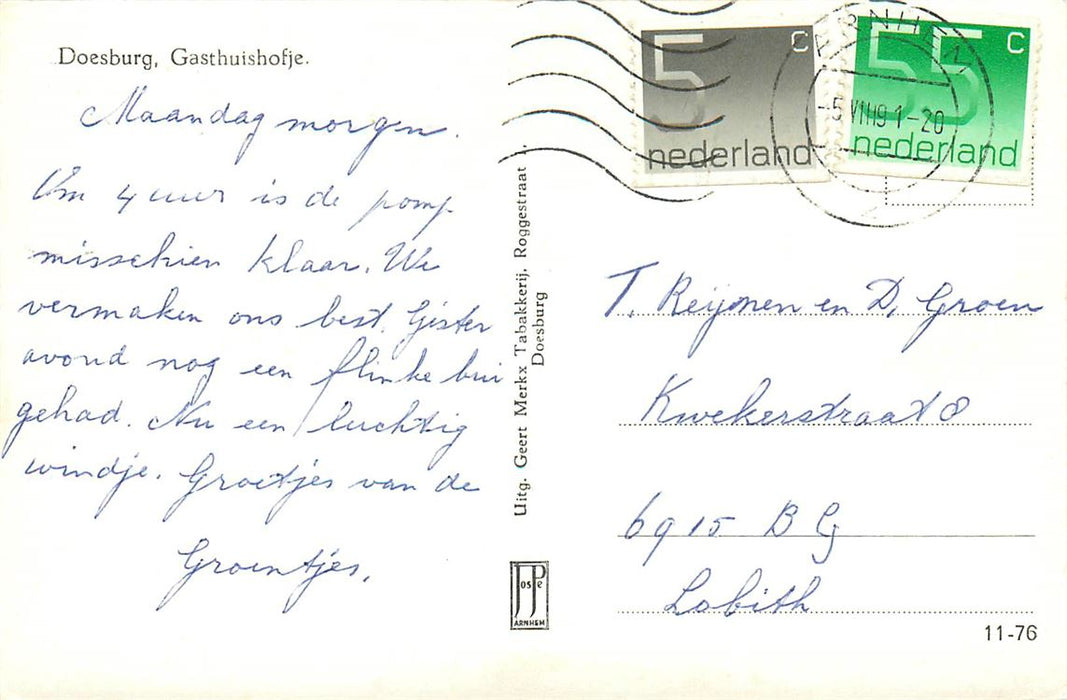 Doesburg, Gasthuishofje.
Maandag morgen.
Om 4 uur is de pomp
misschien klaar. We
vermaken ons best. Gister
avond nog een flinke bui
gehad. Nu een luchtig
windje. Groetjes van de
Groentjes.
Uitg. Geert Merkx Tabakkerij, Roggestraat
Doesburg
JosPe
ARNHEM
5 c
nederland
55 c
nederland
ARNHEM
-5 VIII 91-20
T. Reijmen en D. Groen
Kwekerstraat 8
6915 BG
Lobith
11-76